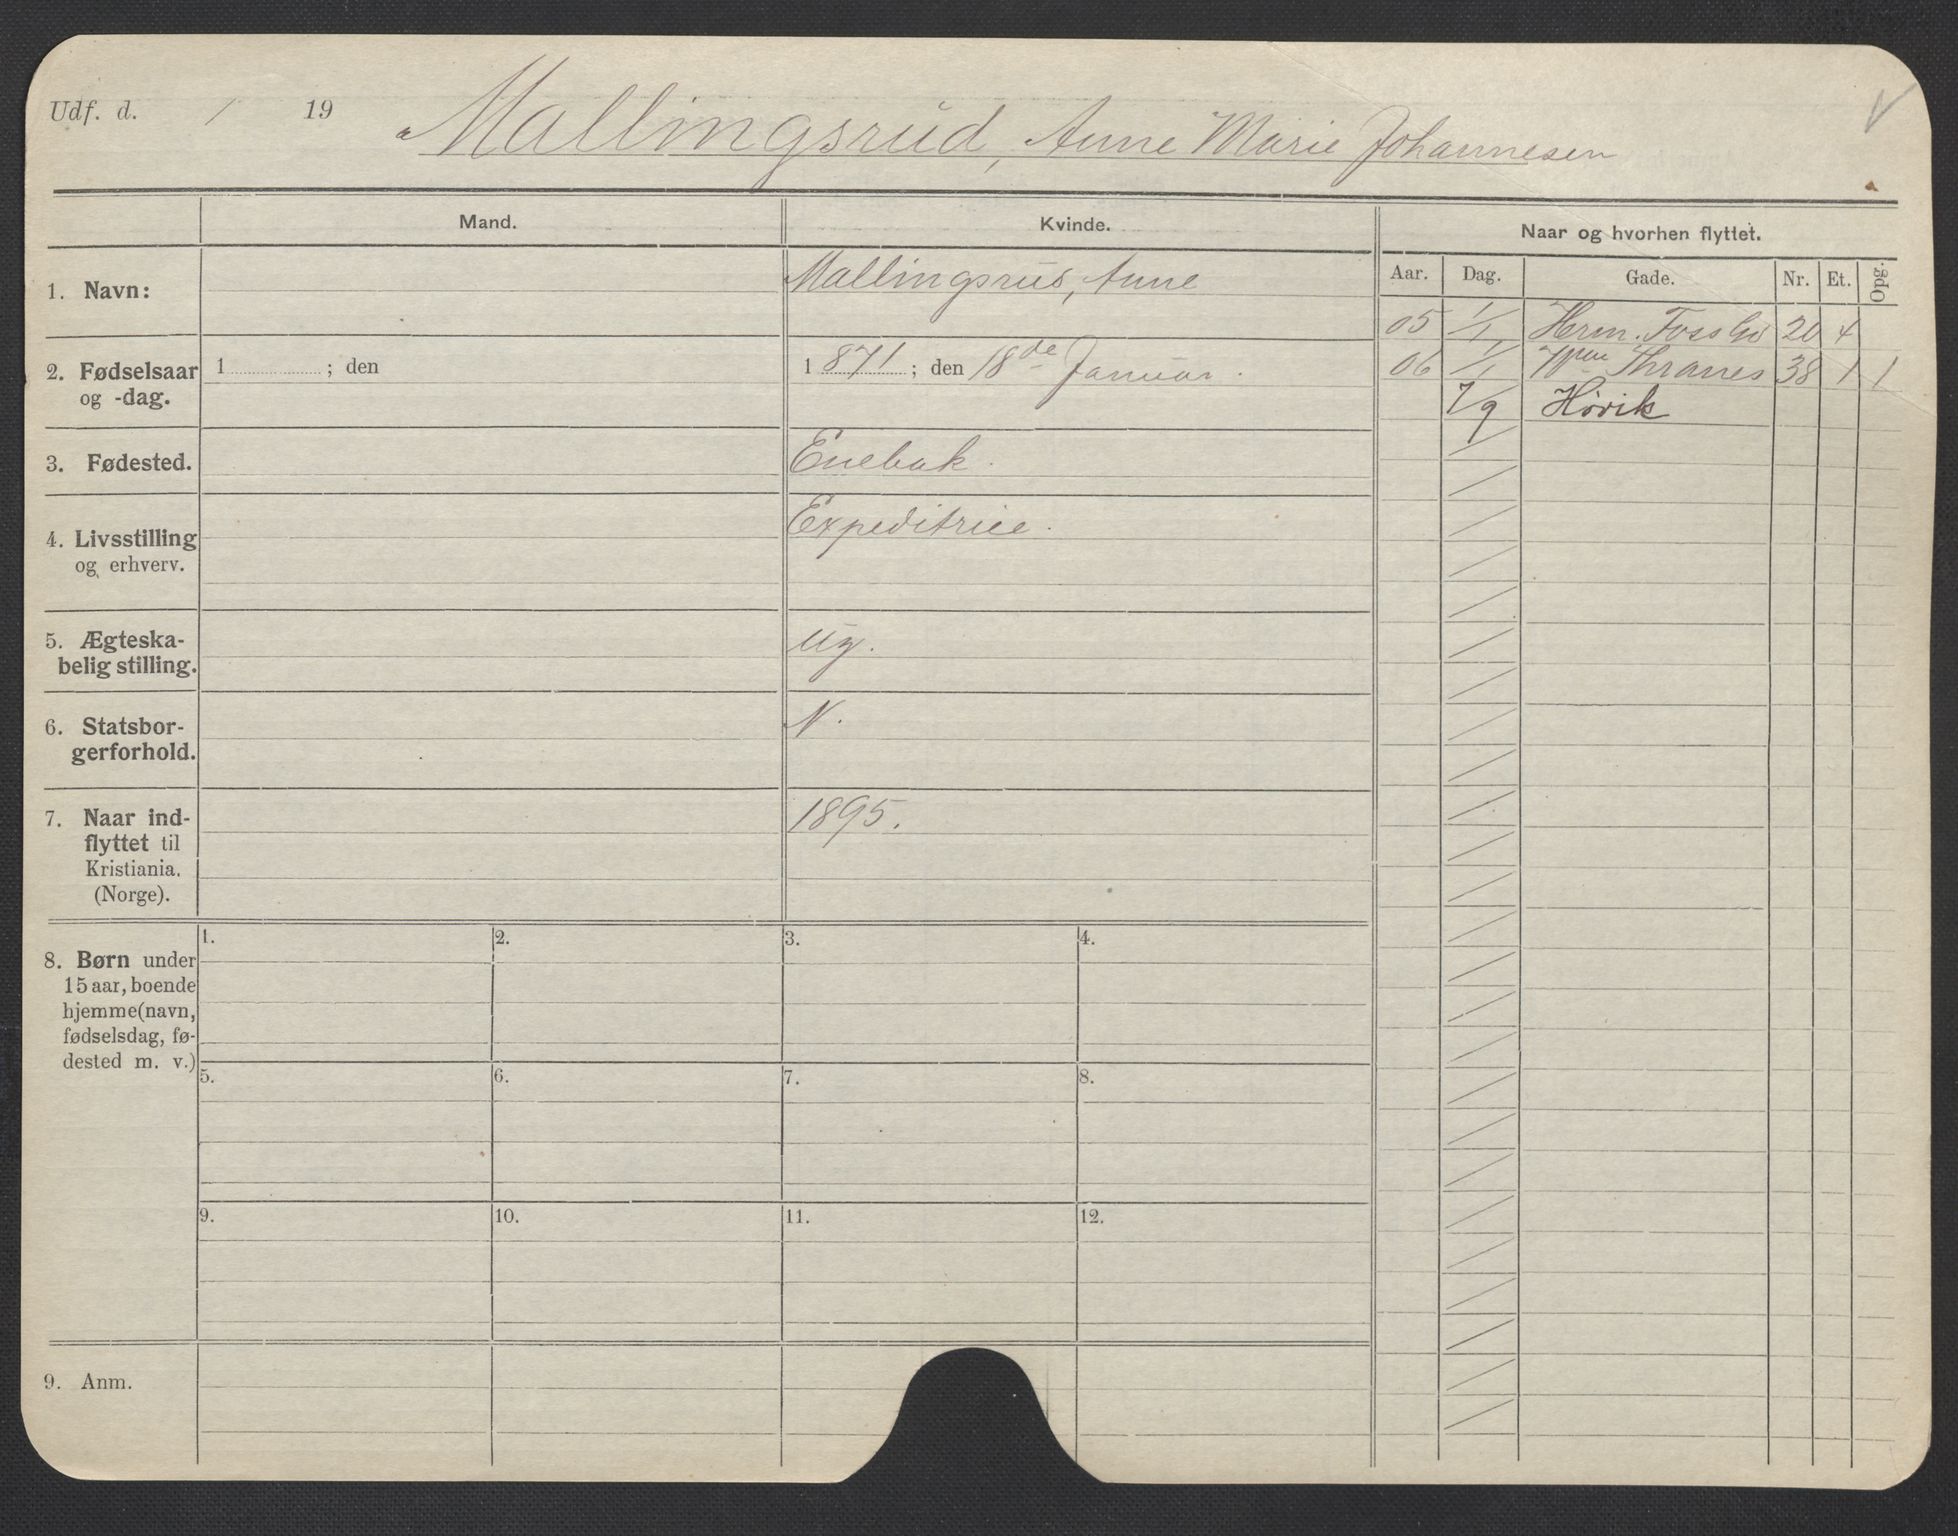 Udf. d. / 19 Mallingsrud, Anne Marie Johannesen
Mand. Kvinde. Naar og hvorhen flyttet.
Aar. Dag. Gade. Nr. Et. Opg.
1. Navn: Mallingsrud, Anne
05 1/1 Herm. Foss 20 4
2. Fødselsaar 1 ; den 1871; den 18de Januar.
og -dag.
06 1/1 Thranes 38 1 1
7/9 Høvik
3. Fødested. Enebak.
4. Livsstilling Expeditrice.
og erhverv.
5. Ægteska- ug.
belig stilling.
6. Statsbor- N.
gerforhold.
7. Naar ind- 1895.
flyttet til
Kristiania.
(Norge).
8. Børn under
15 aar, boende
hjemme (navn,
fødselsdag, fø-
dested m. v.)
1. 2. 3. 4.
5. 6. 7. 8.
9. 10. 11. 12.
9. Anm.